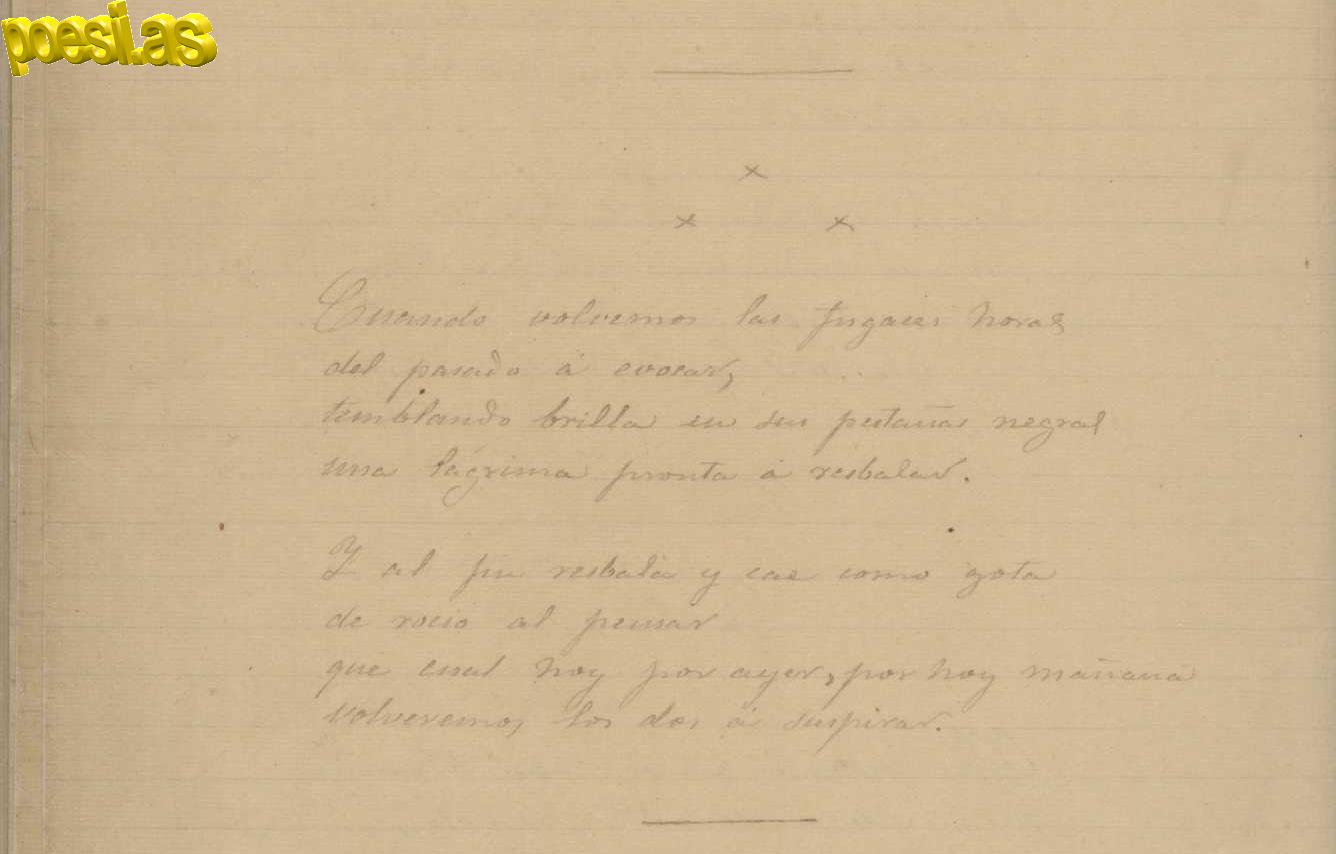 poesi.as
x
x x
Cuando volvemos las fugaces horas
del pasado á evocar,
temblando brilla en sus pestañas negras
una lágrima pronta á resbalar.
Y al fin resbala y cae como gota
de rocio al pensar
que cual hoy por ayer, por hoy mañana
volveremos los dos á suspirar.